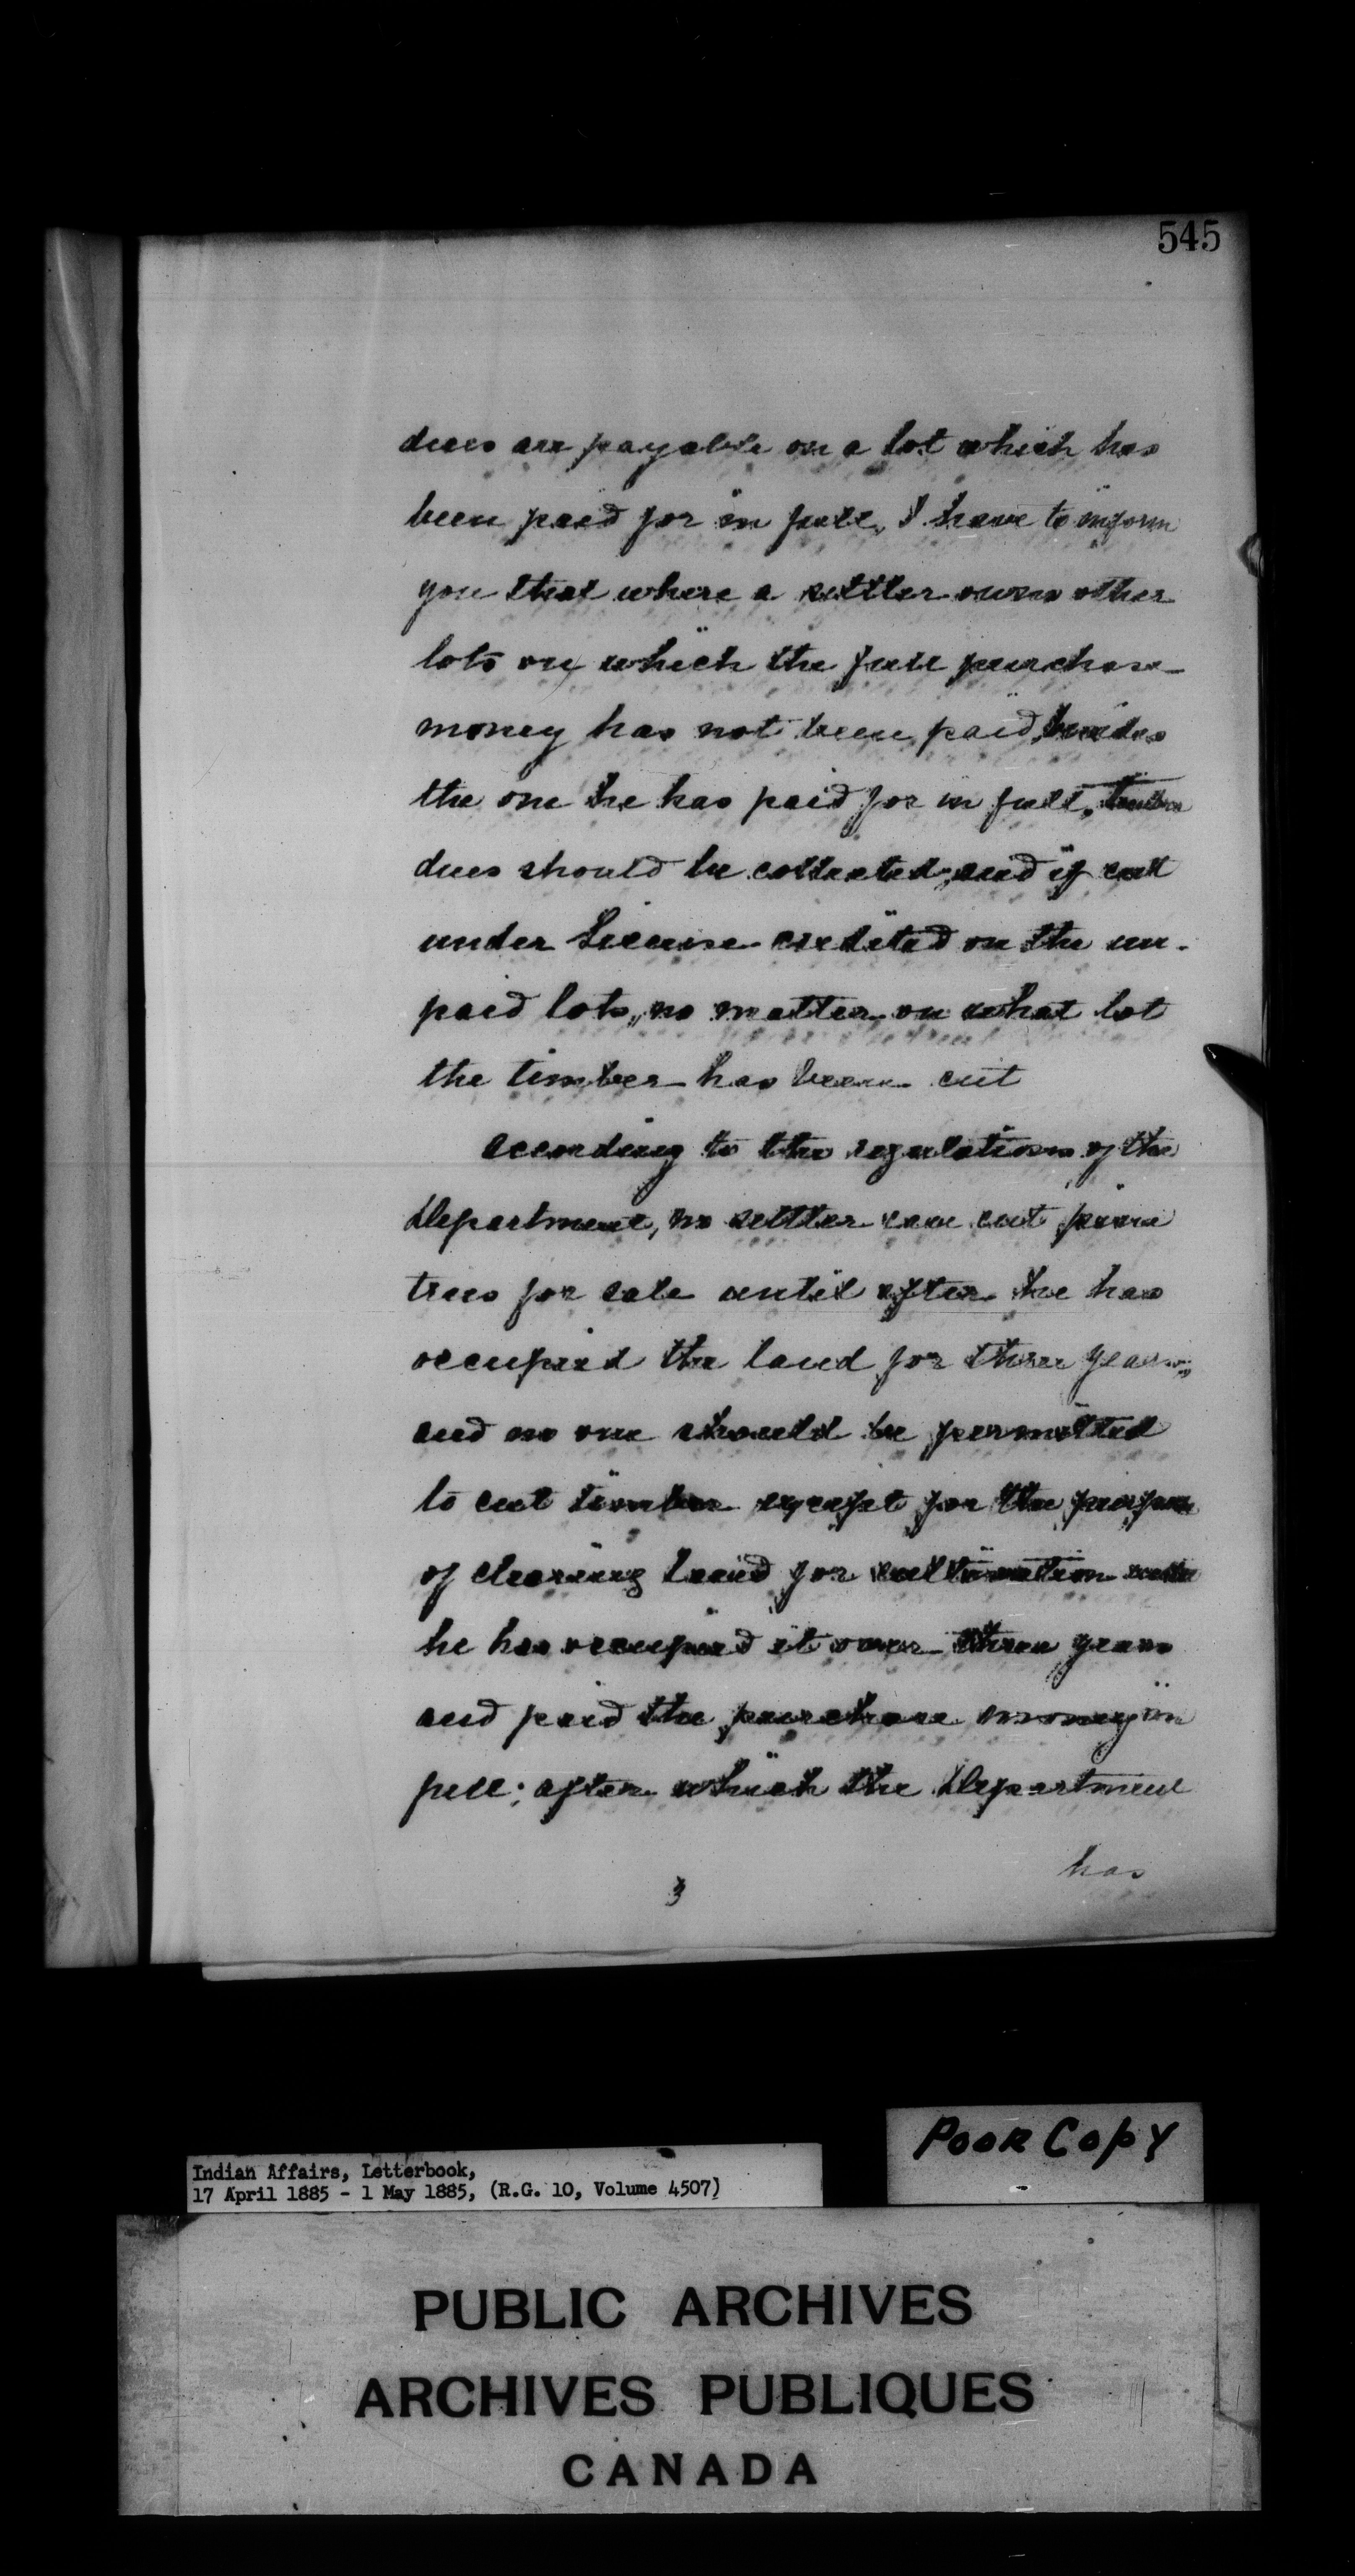 545
dues are payable on a lot which has
been paid for in full, I have to inform
you that where a settler owns other
lots on which the full purchase
money has not been paid, besides
the one he has paid for in full, timber
dues should be collected, and if cut
under License credited on the un-
paid lots, no matter on what lot
the timber has been cut
According to the regulations of the
Department, no settler can cut pine
trees for sale until after he has
occupied the land for three years;
and no one should be permitted
to cut timber except for the purpose
of clearing land for cultivation until
he has occupied it over three years
and paid the purchase money in
full; after which the Department
has
3
POOR COPY
Indian Affairs, Letterbook,
17 April 1885 - 1 May 1885, (R.G. 10, Volume 4507)
PUBLIC ARCHIVES
ARCHIVES PUBLIQUES
CANADA